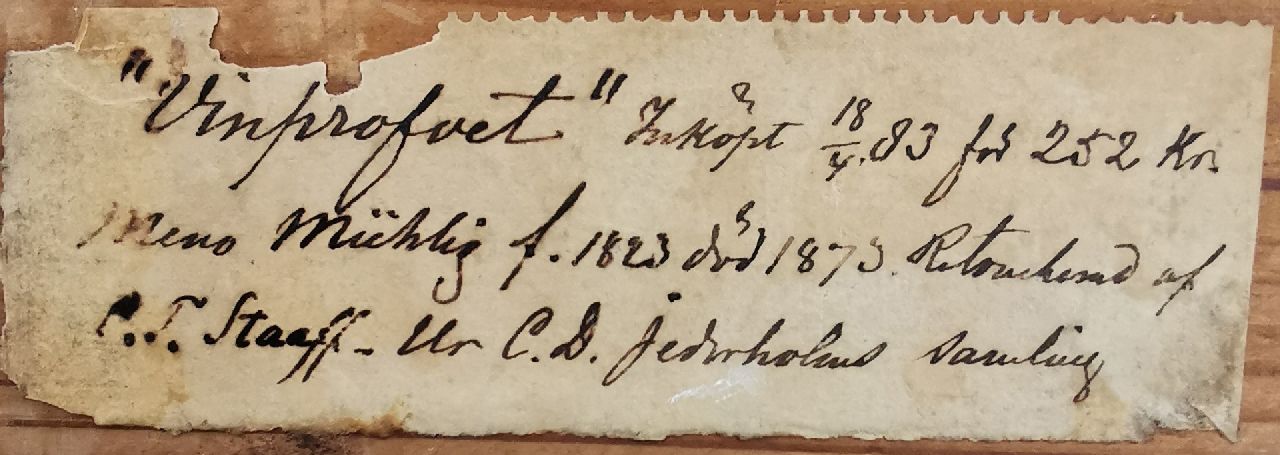 "Vinprofvet" Inköpt 18/4.83 för 252 Kr.
Meno Mühlig f. 1823 död 1873. Retoucherad af
C.T. Staaff - Ur C.D. jederholms samling